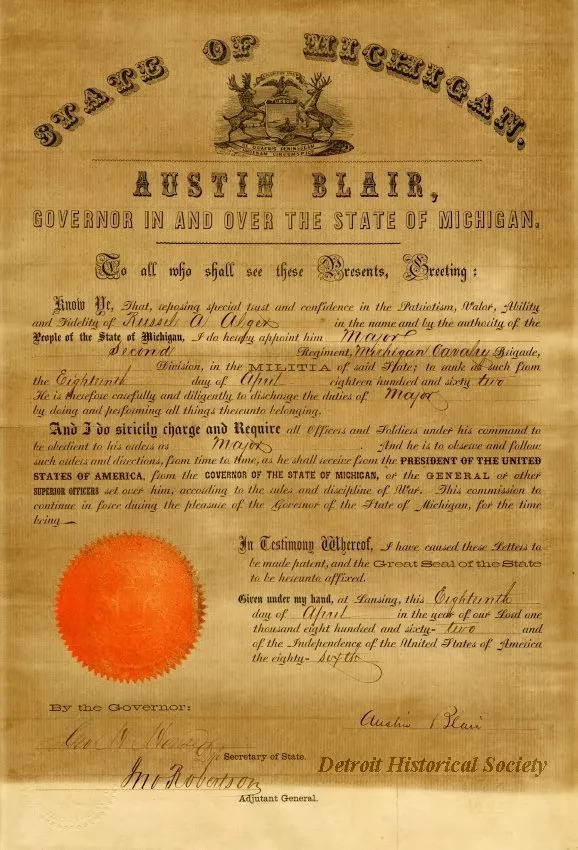 STATE OF MICHIGAN.
TUEBOR
AUSTIN BLAIR,
GOVERNOR IN AND OVER THE STATE OF MICHIGAN.
To all who shall see these Presents, Greeting:
Know Ye, That, reposing special trust and confidence in the Patriotism, Valor, Ability
and Fidelity of Russel A. Alger in the name and by the authority of the
People of the State of Michigan, I do hereby appoint him Major
Second Regiment, Michigan Cavalry Brigade,
Division, in the MILITIA of said State; to rank as such from
the Eighteenth day of April eighteen hundred and sixty two
He is therefore carefully and diligently to discharge the duties of Major
by doing and performing all things thereunto belonging.
And I do strictly charge and Require all Officers and Soldiers under his command to
be obedient to his orders as Major And he is to observe and follow
such orders and directions, from time to time, as he shall receive from the PRESIDENT OF THE UNITED
STATES OF AMERICA, from the GOVERNOR OF THE STATE OF MICHIGAN, or the GENERAL or other
SUPERIOR OFFICERS set over him, according to the rules and discipline of War. This commission to
continue in force during the pleasure of the Governor of the State of Michigan, for the time
being.
In Testimony Whereof, I have caused these Letters to
be made patent, and the Great Seal of the State
to be hereunto affixed.
Given under my hand, at Lansing, this Eighteenth
day of April in the year of our Lord one
thousand eight hundred and sixty- two and
of the Independence of the United States of America
the eighty- sixth
By the Governor:
Austin Blair
Secretary of State.
Jno Robertson
Detroit Historical Society
Adjutant General.